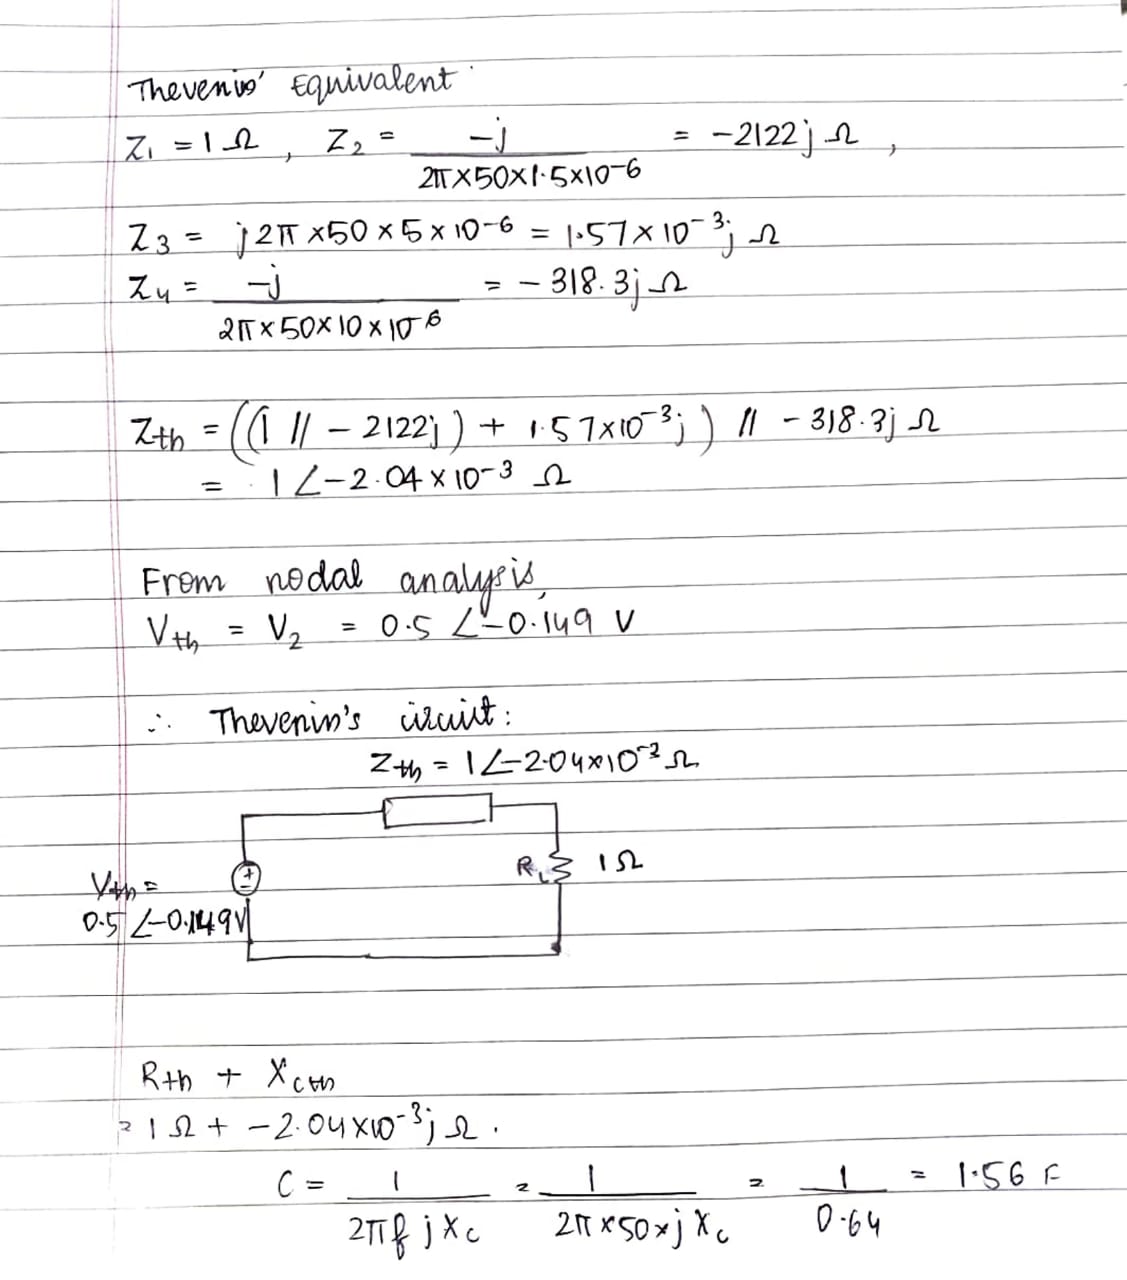 Thevenins' Equivalent
Z₁ = 1 Ω , Z₂ = -j / 2π×50×1.5×10-6 = -2122j Ω ,
Z₃ = j2π ×50 × 5 × 10-6 = 1.57×10⁻³j Ω
Z₄ = -j / 2π×50×10×10⁻⁶ = -318.3j Ω
Zth = ((1 // -2122j) + 1.57×10⁻³j) // -318.3j Ω
= 1∠-2.04×10⁻³ Ω
From nodal analysis,
Vth = V₂ = 0.5 ∠-0.149 V
∴ Thevenin's circuit:
Zth = 1∠-2.04×10⁻³ Ω
RL 1Ω
Vth =
0.5 ∠-0.149V
Rth + Xcth
= 1Ω + -2.04×10⁻³j Ω.
C = 1 / 2πf jXc = 1 / 2π×50×jXc = 1 / 0.64 = 1.56 F